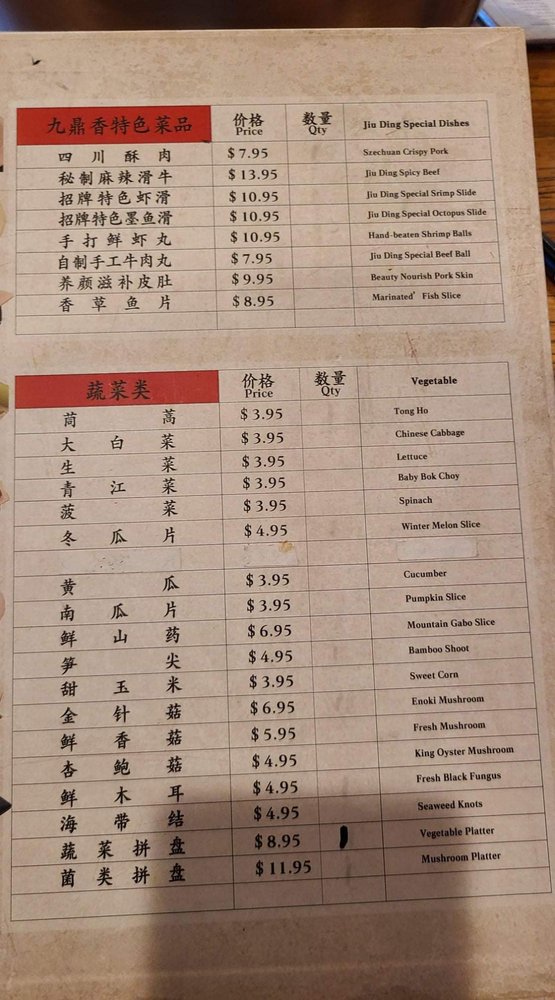 九鼎香特色菜品 价格 Price 数量 Qty Jiu Ding Special Dishes
四川酥肉 $7.95 Szechuan Crispy Pork
秘制麻辣滑牛 $13.95 Jiu Ding Spicy Beef
招牌特色虾滑 $10.95 Jiu Ding Special Srimp Slide
招牌特色墨鱼滑 $10.95 Jiu Ding Special Octopus Slide
手打鲜虾丸 $10.95 Hand-beaten Shrimp Balls
自制手工牛肉丸 $7.95 Jiu Ding Special Beef Ball
养颜滋补皮肚 $9.95 Beauty Nourish Pork Skin
香草鱼片 $8.95 Marinated Fish Slice
蔬菜类 价格 Price 数量 Qty Vegetable
茼蒿 $3.95 Tong Ho
大白菜 $3.95 Chinese Cabbage
生菜 $3.95 Lettuce
青江菜 $3.95 Baby Bok Choy
菠菜 $3.95 Spinach
冬瓜片 $4.95 Winter Melon Slice
黄瓜 $3.95 Cucumber
南瓜片 $3.95 Pumpkin Slice
鲜山药 $6.95 Mountain Gabo Slice
笋尖 $4.95 Bamboo Shoot
甜玉米 $3.95 Sweet Corn
金针菇 $6.95 Enoki Mushroom
鲜香菇 $5.95 Fresh Mushroom
杏鲍菇 $4.95 King Oyster Mushroom
鲜木耳 $4.95 Fresh Black Fungus
海带结 $4.95 Seaweed Knots
蔬菜拼盘 $8.95 Vegetable Platter
菌类拼盘 $11.95 Mushroom Platter